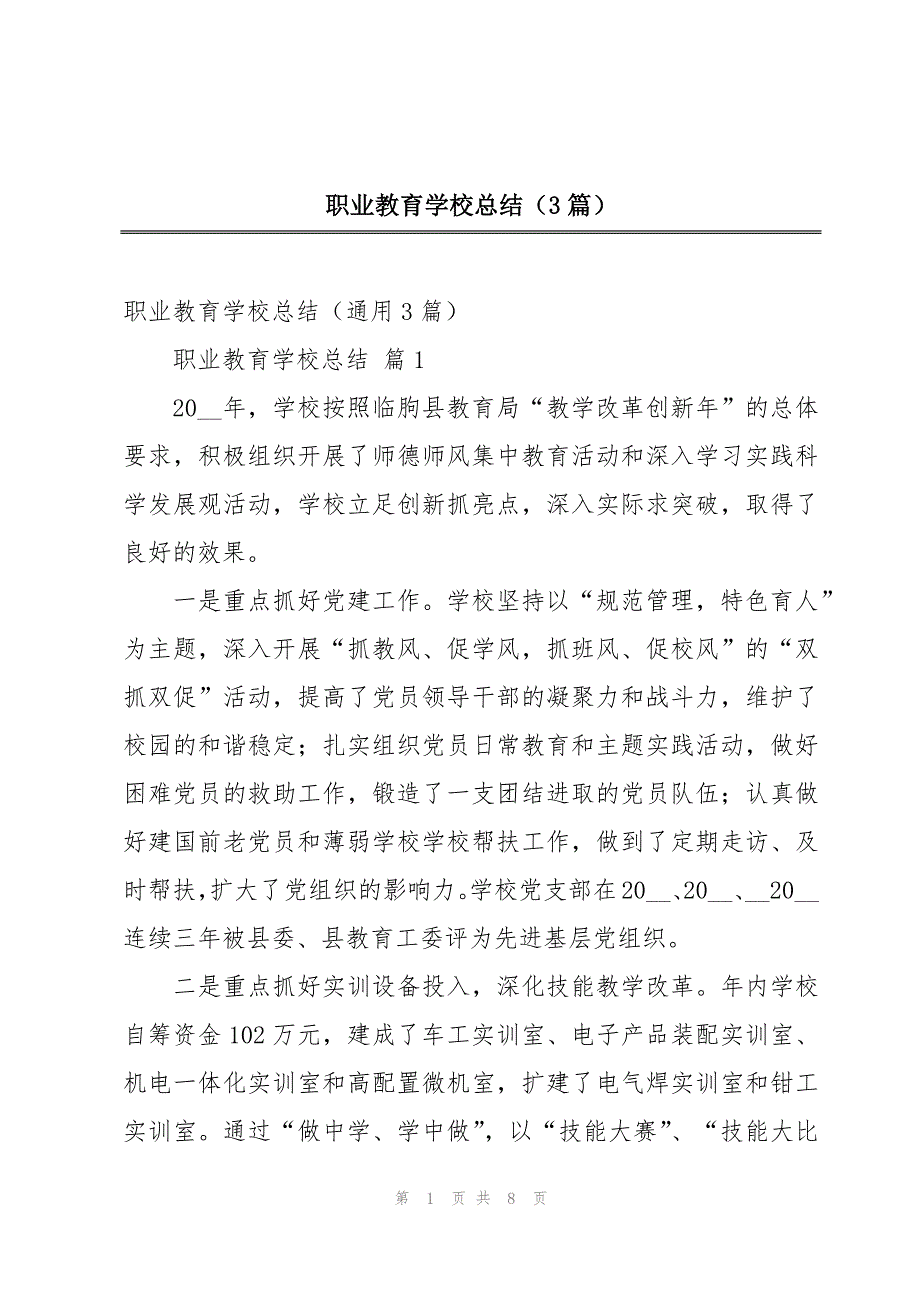 职业教育学校总结（3篇）
职业教育学校总结（通用3篇）
职业教育学校总结 篇1
20__年，学校按照临朐县教育局“教学改革创新年”的总体
要求，积极组织开展了师德师风集中教育活动和深入学习实践科
学发展观活动，学校立足创新抓亮点，深入实际求突破，取得了
良好的效果。
一是重点抓好党建工作。学校坚持以“规范管理，特色育人”
为主题，深入开展“抓教风、促学风，抓班风、促校风”的“双
抓双促”活动，提高了党员领导干部的凝聚力和战斗力，维护了
校园的和谐稳定；扎实组织党员日常教育和主题实践活动，做好
困难党员的救助工作，锻造了一支团结进取的党员队伍；认真做
好建国前老党员和薄弱学校学校帮扶工作，做到了定期走访、及
时帮扶，扩大了党组织的影响力。学校党支部在20__、20__、__20__
连续三年被县委、县教育工委评为先进基层党组织。
二是重点抓好实训设备投入，深化技能教学改革。年内学校
自筹资金102万元，建成了车工实训室、电子产品装配实训室、
机电一体化实训室和高配置微机室，扩建了电气焊实训室和钳工
实训室。通过“做中学、学中做”，以“技能大赛”、“技能大比
第 1 页 共 8 页